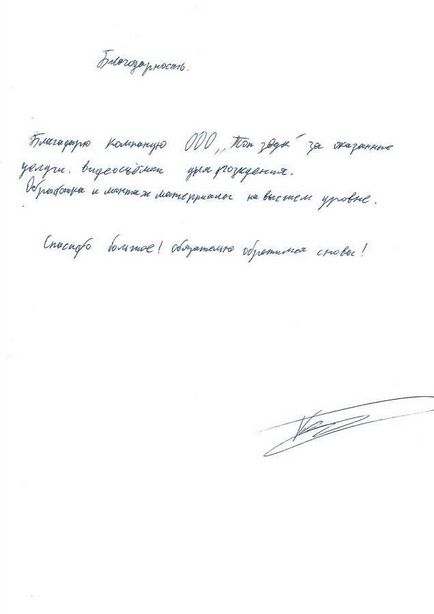 Благодарность.
Благодарю компанию ООО „Топ звук“ за оказанные
услуги. видеосъёмки дня рождения.
Обработка и монтаж материалов на высшем уровне.
Спасибо большое! обязательно обратимся снова!